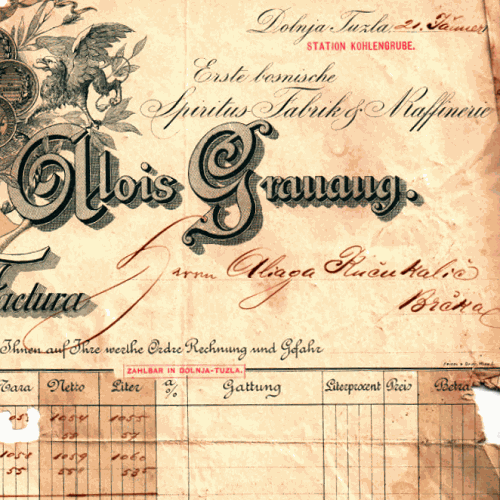 Dolnja Tuzla, 21. Jänner
STATION KOHLENGRUBE.
Erste bosnische
Spiritus Fabrik & Raffinerie
Alois Grauaug.
Factura
Herrn Aliaga Kučukalić
Brčka
Ihnen auf Ihre werthe Ordre Rechnung und Gefahr
ZAHLBAR IN DOLNJA-TUZLA.
Tara Netto Liter a % Gattung Literprocent Preis Betrag
1054 1055
55 57
1054 1059 1060
55 55 535